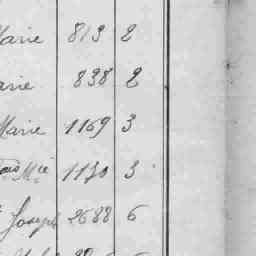 Marie 813 2
Marie 838 2
Marie 1169 3
Mie 1170 3
Joseph 2688 6